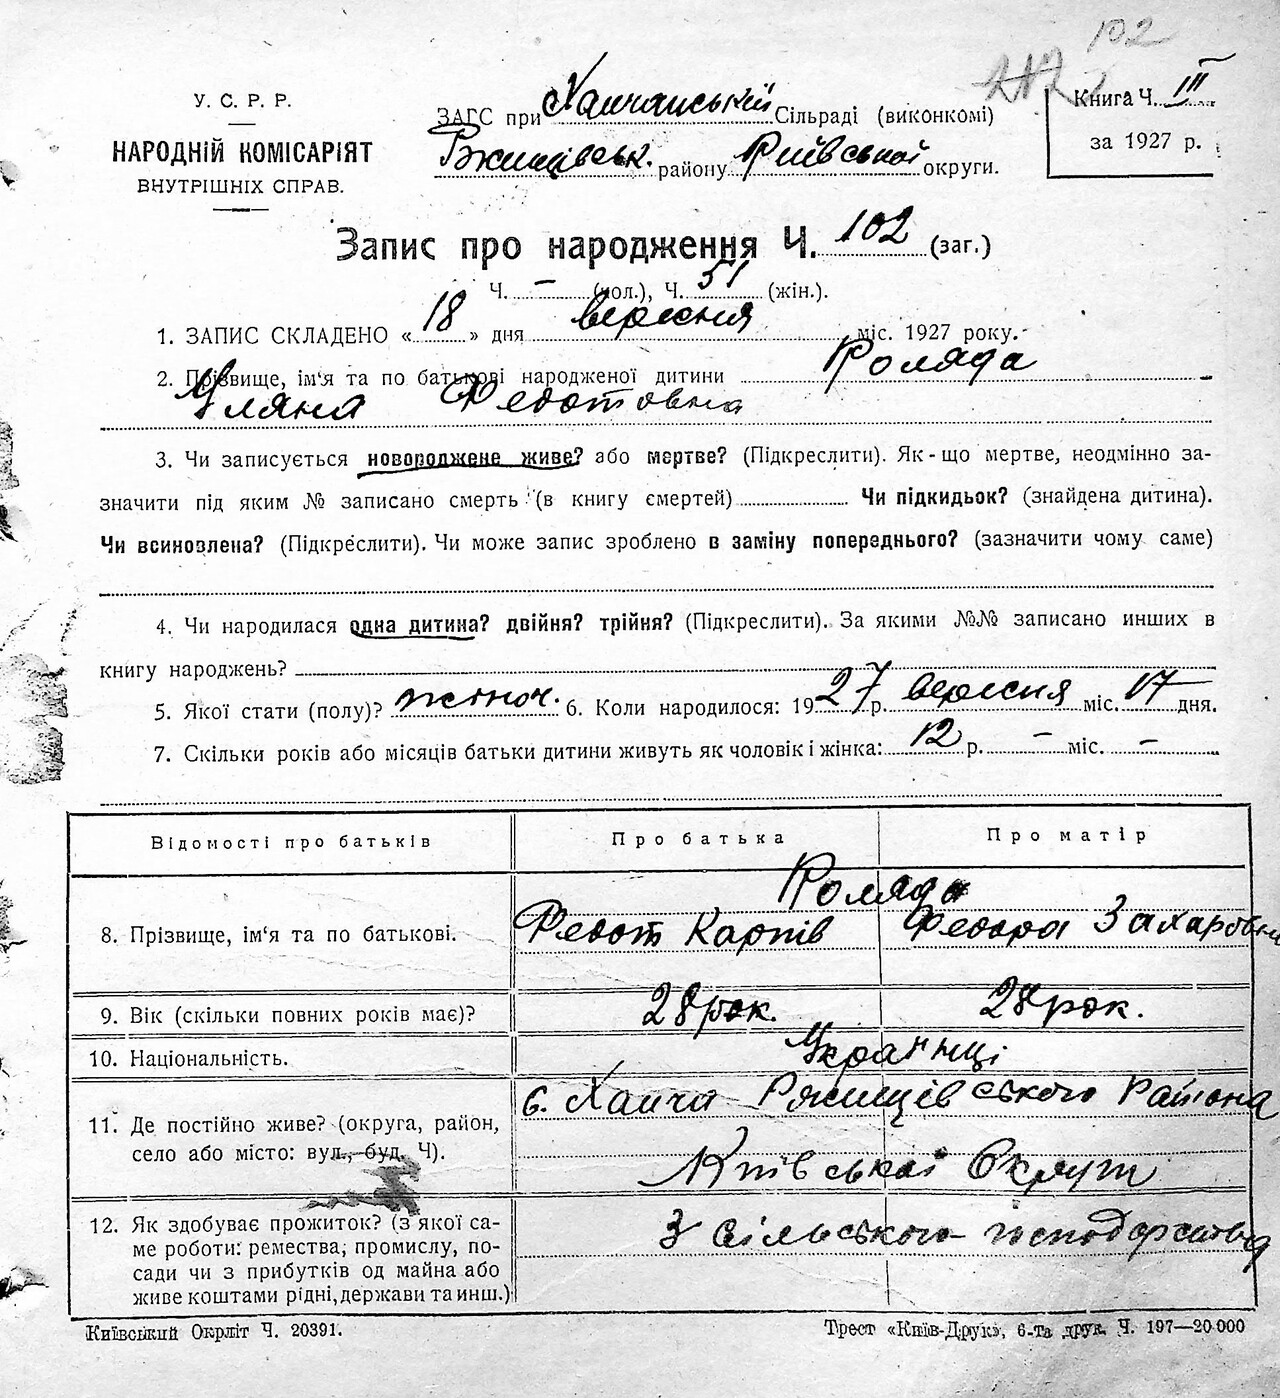 102
У. С. Р. Р.
НАРОДНІЙ КОМІСАРІЯТ
ВНУТРІШНІХ СПРАВ.
ЗАГС при Ханчанській Сільраді (виконкомі)
Ржищівськ. району Київської округи.
Книга Ч. III
за 1927 р.
Запис про народження Ч. 102 (заг.)
Ч. — (чол.), Ч. 51 (жін.).
1. ЗАПИС СКЛАДЕНО « 18 » дня вересня міс. 1927 року.
2. Прізвище, ім'я та по батькові народженої дитини Коляда
Уляна Федотовна
3. Чи записується новороджене живе? або мертве? (Підкреслити). Як-що мертве, неодмінно за-
значити під яким № записано смерть (в книгу смертей) Чи підкидьок? (знайдена дитина).
Чи всиновлена? (Підкреслити). Чи може запис зроблено в заміну попереднього? (зазначити чому саме)
4. Чи народилася одна дитина? двійня? трійня? (Підкреслити). За якими №№ записано инших в
книгу народжень?
5. Якої стати (полу)? жіноч. 6. Коли народилося: 1927 р. вересня міс. 17 дня.
7. Скільки років або місяців батьки дитини живуть як чоловік і жінка: 12 р. — міс. —
Відомості про батьків
Про батька
Про матір
8. Прізвище, ім'я та по батькові.
Коляда
Федот Карпів
Федора Захаровна
9. Вік (скільки повних років має)?
28 рок.
28 рок.
10. Національність.
Українці
11. Де постійно живе? (округа, район,
село або місто: вул., буд. Ч).
с. Ханча Ржищівського Района
Київської Округи
12. Як здобуває прожиток? (з якої са-
ме роботи: ремества, промислу, по-
сади чи з прибутків од майна або
живе коштами рідні, держави та инш.)
З сільського господарства
Київський Окрліт Ч. 20391.
Трест «Київ-Друк», 6-та друк. Ч. 197—20000